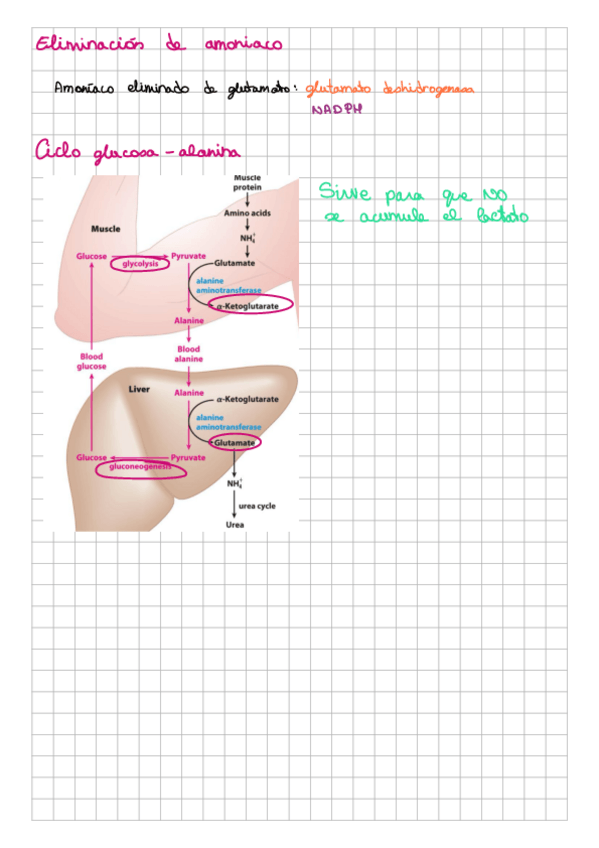 Eliminación de amoniaco
Amoníaco eliminado de glutamato: glutamato deshidrogenasa
NADPH
Ciclo glucosa - alanina
Sirve para que NO
se acumule el lactato
Muscle
protein
Amino acids
NH4+
Muscle
Glucose
glycolysis
Pyruvate
Glutamate
alanine
aminotransferase
α-Ketoglutarate
Alanine
Blood
glucose
Blood
alanine
Liver
Alanine
α-Ketoglutarate
alanine
aminotransferase
Glutamate
Glucose
gluconeogenesis
Pyruvate
NH4+
urea cycle
Urea